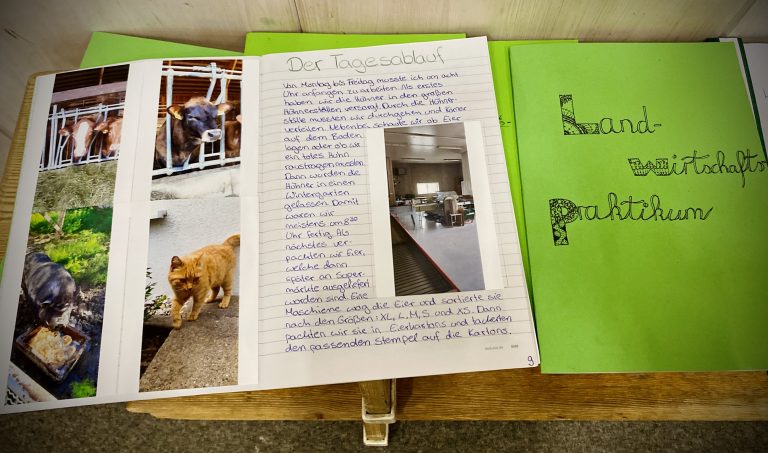 Der Tagesablauf
Von Montag bis Freitag musste ich um acht
Uhr anfangen zu arbeiten. Als erstes
haben wir die Hühner in den großen
Hühnerställen versorgt. Durch die Hühner-
ställe mussten wir durchgehen und Körner
verteilen. Nebenbei schaute wir ob Eier
auf dem Boden
lagen oder ob wir
ein totes Huhn
raustragen mussten.
Dann wurden die
Hühner in einen
Wintergarten
gelassen. Damit
waren wir
meistens um 8³⁰
Uhr fertig. Als
nächstes ver-
packten wir Eier,
welche dann
später an Super-
märkte ausgeliefert
worden sind. Eine
Maschieme wog die Eier und sortierte sie
nach den Größen: XL, L, M, S und XS. Dann
packten wir sie in Eierkartons und tackerten
den passenden Stempel auf die Kartons.
9
Land-
wirtschafts
Praktikum